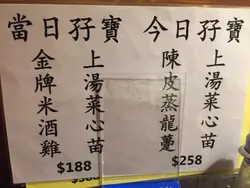 當日孖寶
上湯菜心苗
金牌米酒雞
$188
今日孖寶
上湯菜心苗
陳皮蒸龍躉
$258